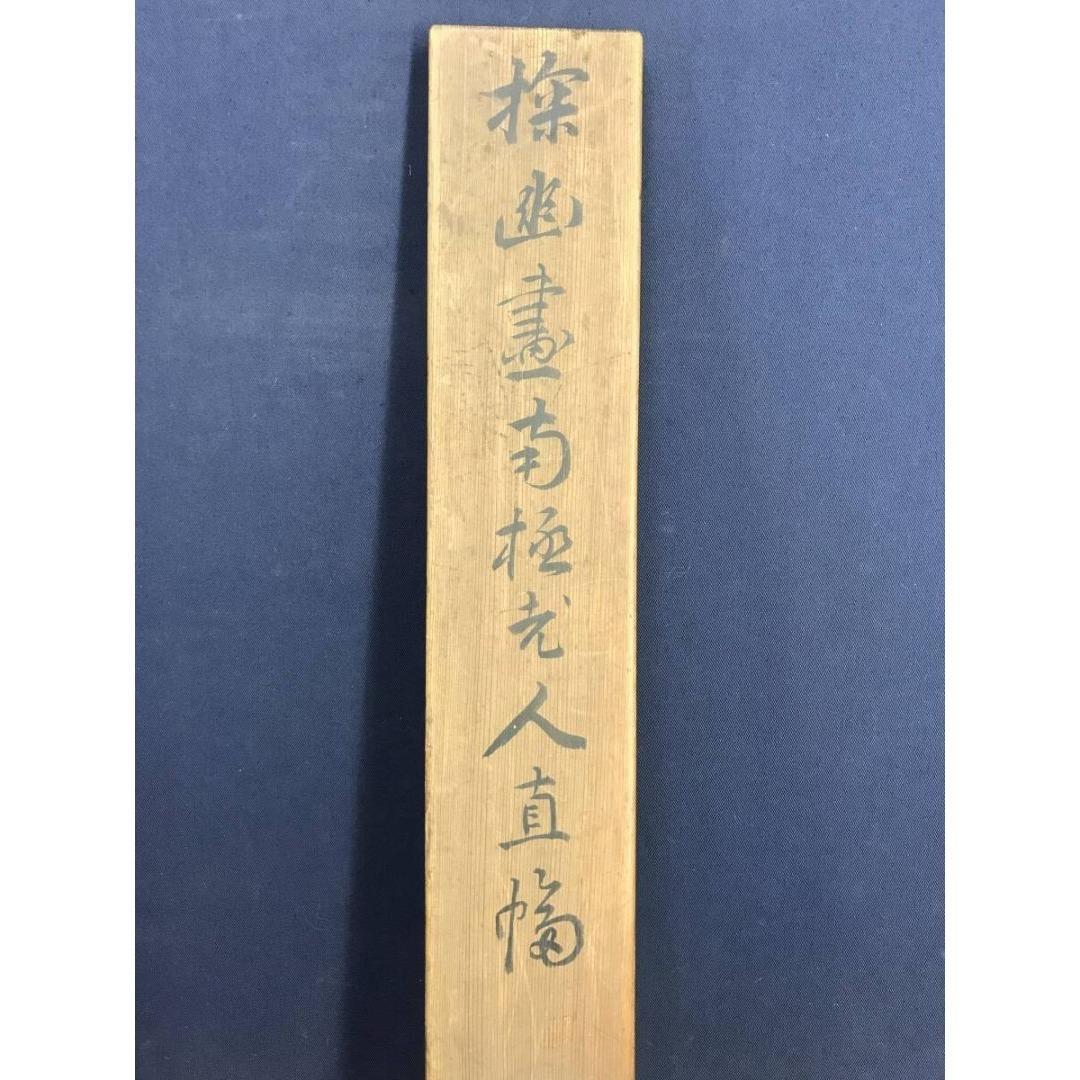 探幽畫南極老人直幅